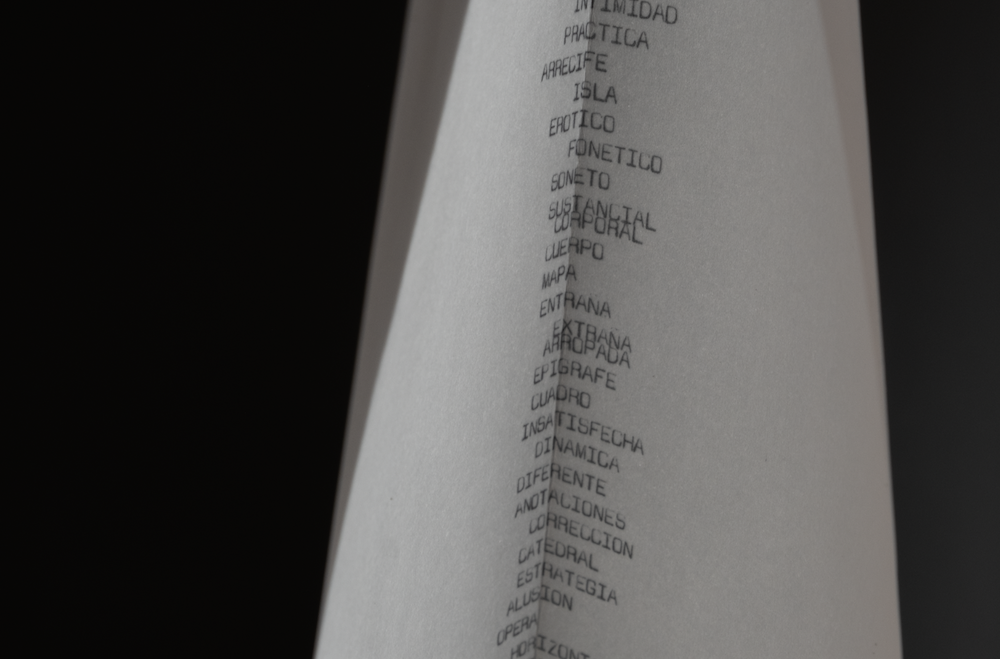 INTIMIDAD
PRACTICA
ARRECIFE
ISLA
EROTICO
FONETICO
SONETO
SUSTANCIAL
CORPORAL
CUERPO
MAPA
ENTRANA
EXTRANA
ARROPADA
EPIGRAFE
CUADRO
INSATISFECHA
DINAMICA
DIFERENTE
ANOTACIONES
CORRECCION
CATEDRAL
ESTRATEGIA
ALUSION
OPERA
HORIZONT